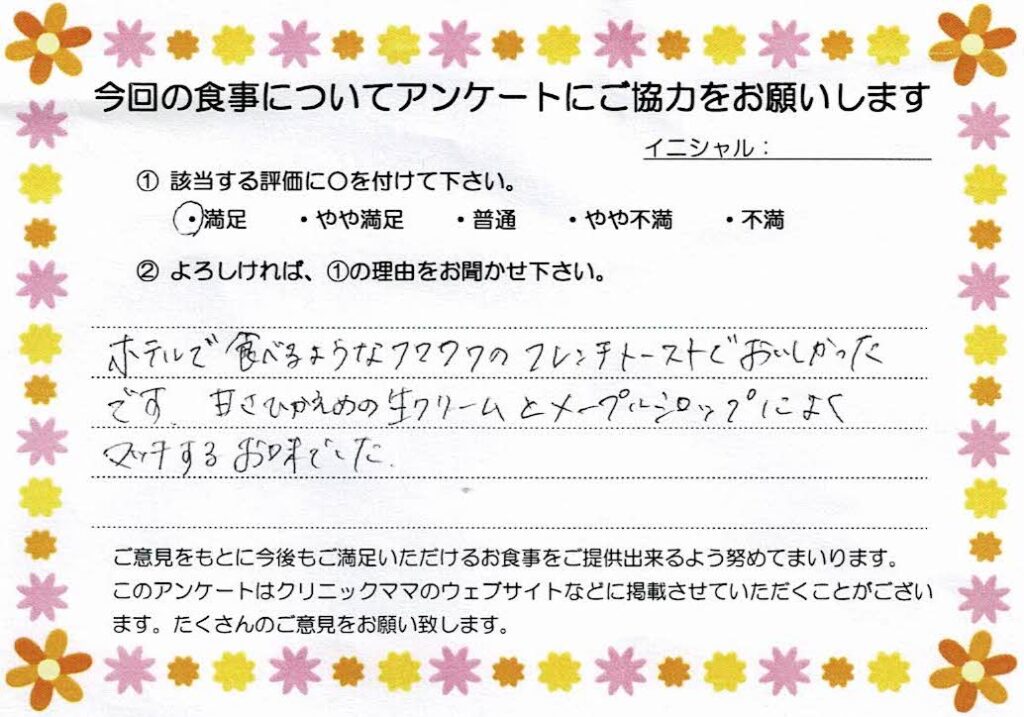 今回の食事についてアンケートにご協力をお願いします
イニシャル：
① 該当する評価に○を付けて下さい。
・満足 ・やや満足 ・普通 ・やや不満 ・不満
② よろしければ、①の理由をお聞かせ下さい。
ホテルで食べるようなフワフワのフレンチトーストでおいしかった
です。甘さひかえめの生クリームとメープルシロップによく
マッチするお味でした。
ご意見をもとに今後もご満足いただけるお食事をご提供出来るよう努めてまいります。
このアンケートはクリニックママのウェブサイトなどに掲載させていただくことがござい
ます。たくさんのご意見をお願い致します。